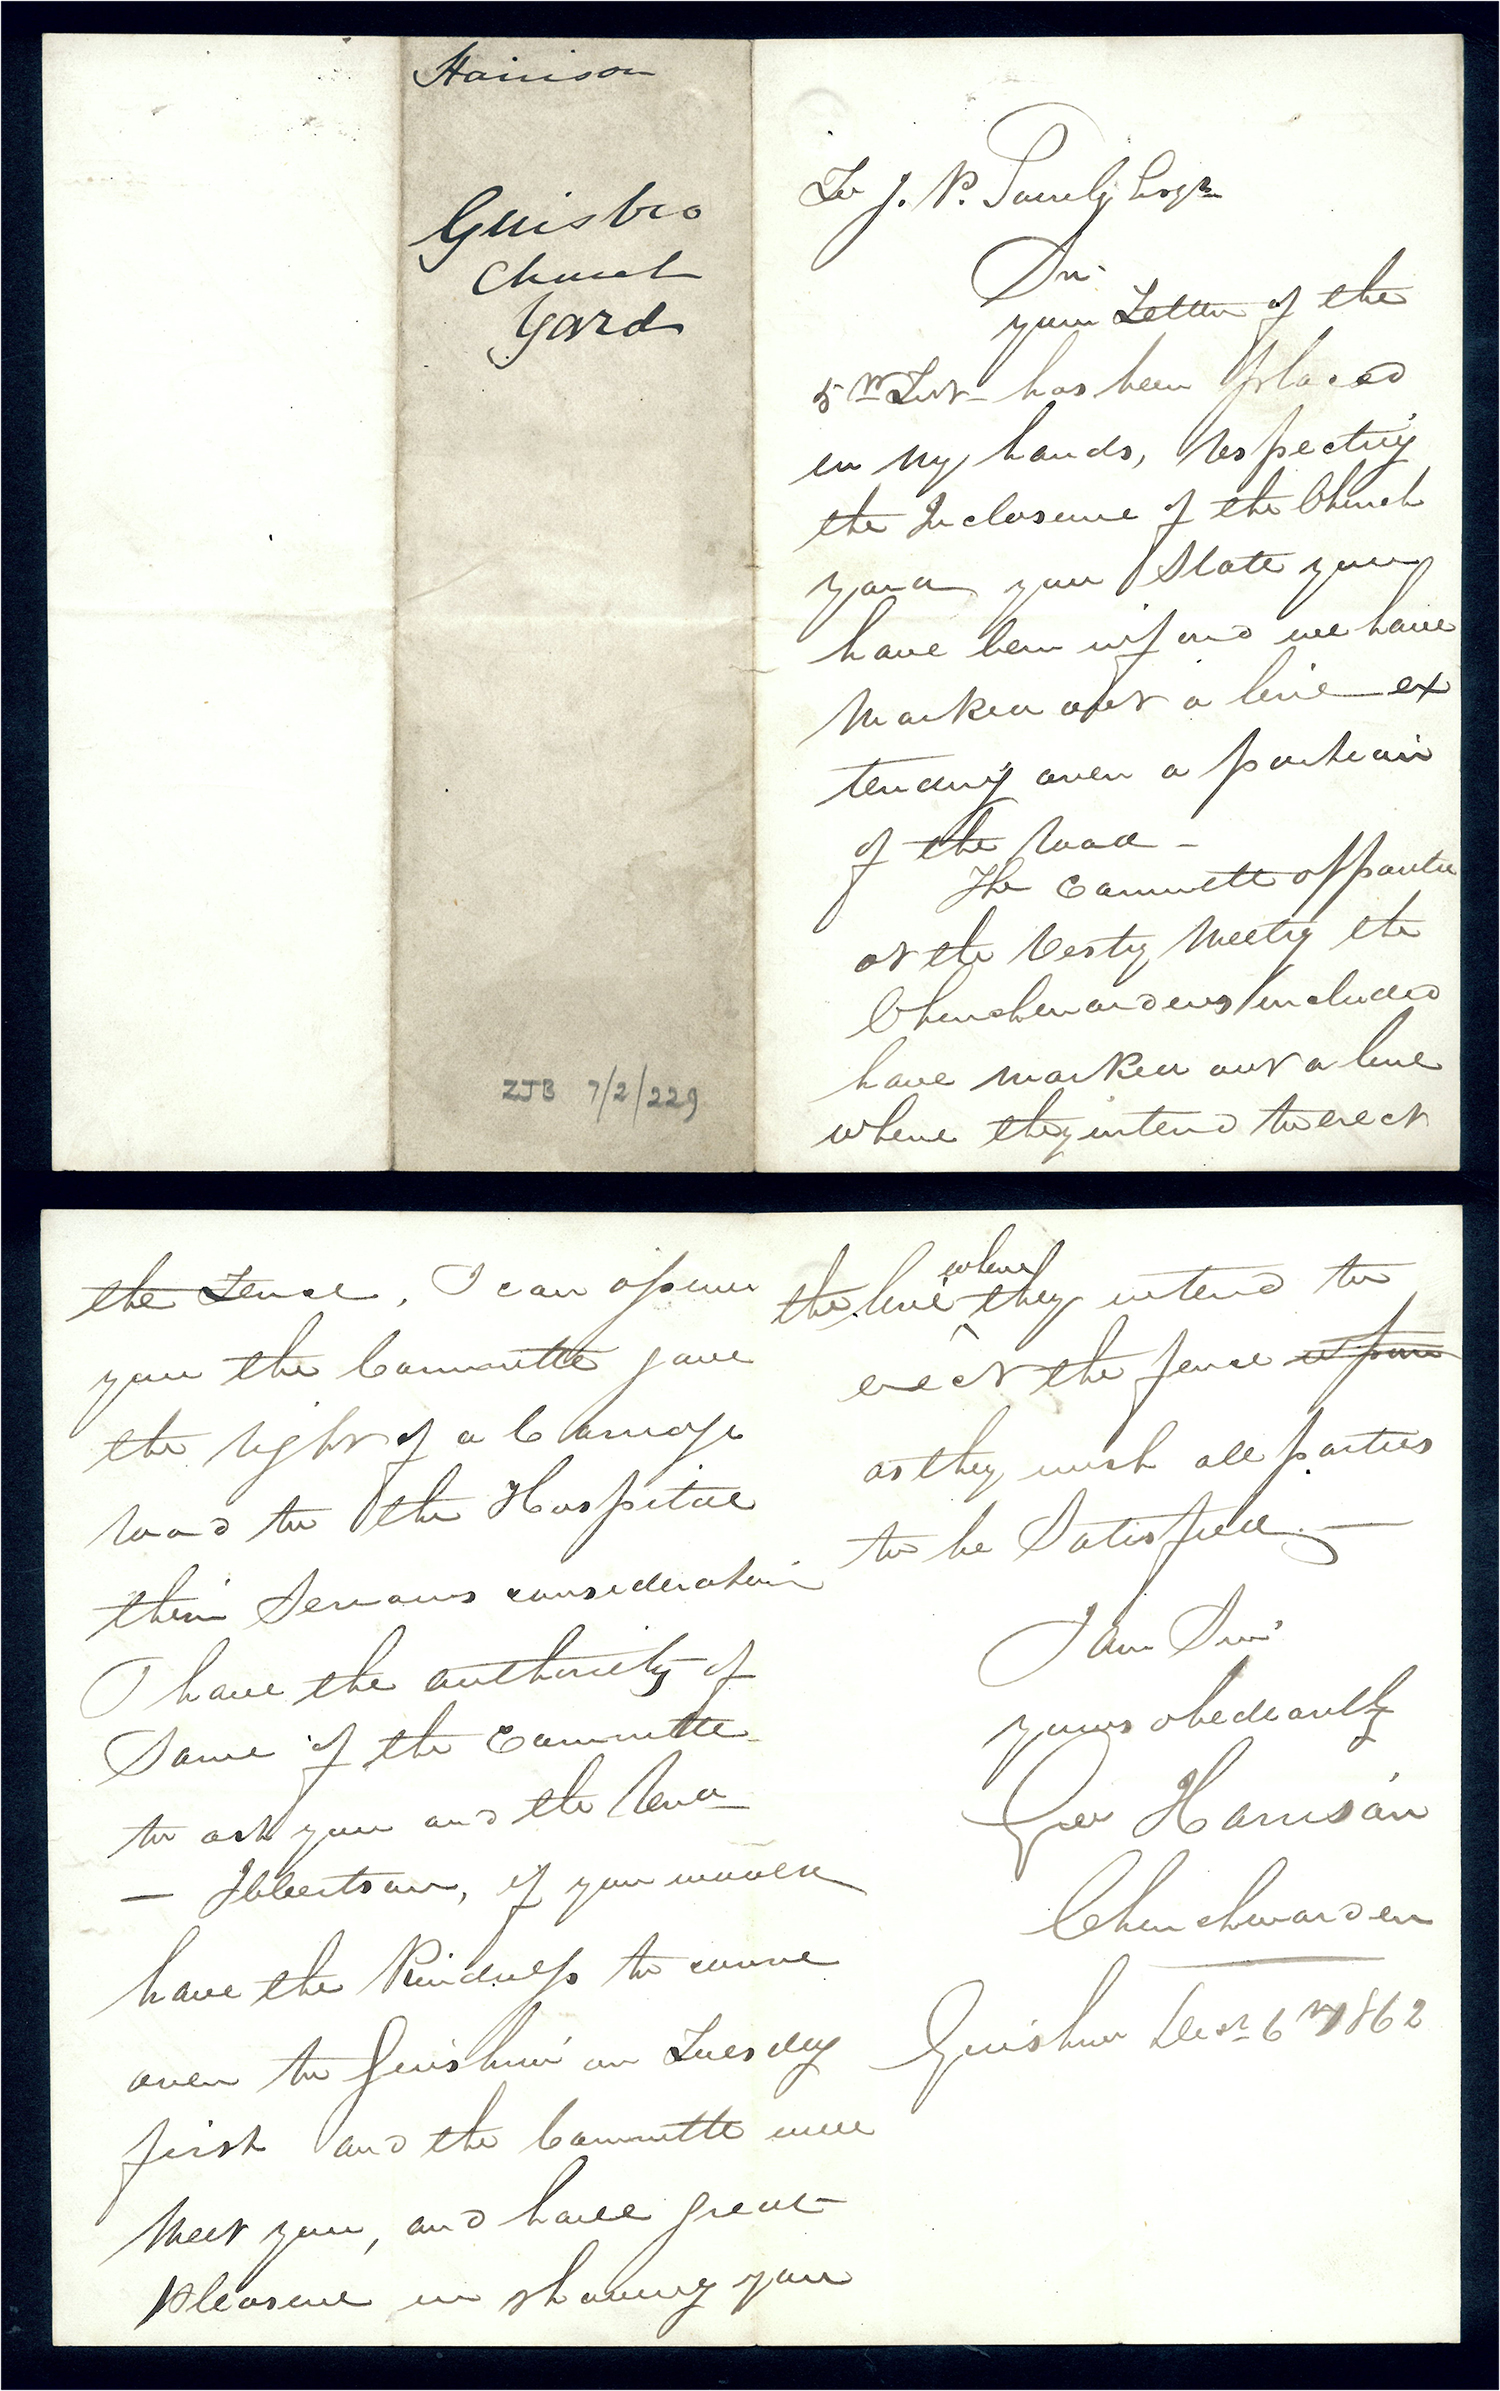 Harrison
Guisbro
Church
Yard
ZJB 7/2/229
To J. P. Sowerby Esqr
Sir
your Letter of the
5th Inst has been placed
in my hands, respecting
the Inclosure of the Church
yard you State you
have been infmd we have
marked out a line ex
tending over a portion
of the road -
The Committe appointed
at the Vestry Meeting the
Churchwardens included
have marked out a line
where they intend to erect
the Fence, I can assure
you the Committe gave
the right of a Carriage
road to the Hospital
their Serious consideration
I have the authority of
Some of the Committe
to ask you and the Revd
— Ibbertson, if you would
have the Kindness to come
over to Guisbro on Tuesday
first and the Committe will
meet you, and have great
Pleasure in showing you
the line where they intend to
erect the fence
as they wish all parties
to be Satisfied. —
I am Sir
yours obediantly
Geo Harrison
Churchwarden
Guisbro Decr 6th 1862